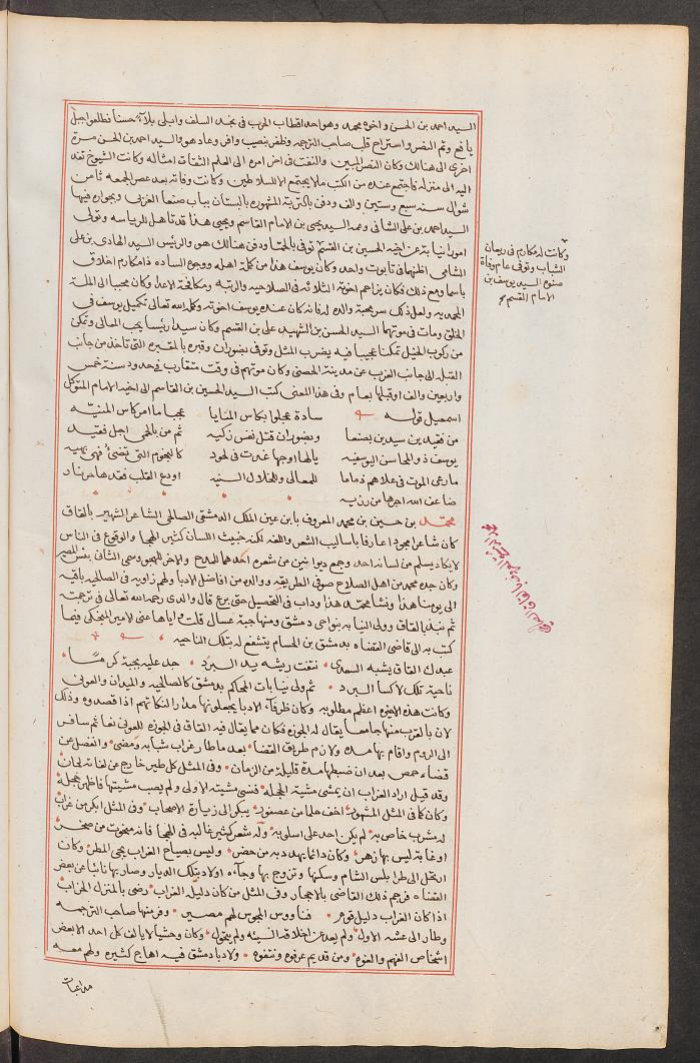 السيد احمد بن الحسن واخوه محمد وهو احد اقطاب الحرب فى نجد السلف وابلى بلاء حسنا فطلعوا جبل
يافع وتم النصر واستراح قلب صاحب الترجمه وظفر بنصيب وافر وعاد هو والسيد احمد بن الحسن مرة
اخرى الى هنالك وكان النصر المبين والتفت فى اخر امره الى العلم الثقات امثاله وكانت الشيوخ تفد
اليه الى منزله فاجتمع عنده من الكتب ملا يجتمع الا للسلاطين وكانت وفاته بعد عصر الجمعه ثامن
شوال سنه سبع وستين والف ودفن المشهوره بالبستان بباب صنعا الغربى وبجواره فيها
السيد احمد بن على الشامى وعمه السيد يحيى بن الامام القاسم ويحيى هذا قد تاهل للرياسه وتولى
امورا نيابة عن اخيه الحسين بن القسم توفى ودفن هنالك هو والرئيس السيد الهادى بن على
الشامى فى تابوت واحد وكان يوسف هذا من كملة اهله ووجوه الساده ذا مكارم اخلاق
باسما ومع ذلك فكان يزاحم اخوته الثلاثه فى الصلاحيه والرتبه ومكافحة الاعدا وكان محببا الى الملة
المحمديه ولعل ذلك سر محبة والده له فانه كان عنده يوسف اخوته وكله الله تعالى تكميل يوسف فى
الخلق ومات فى موتهما السيد الحسن بن الشهيد على بن القسم وكان سيدا رئيسا يحب المعالى وتمكن
من ركوب الخيل تمكنا عجيبا فيه يضرب المثل وتوفى بضوران وقبره بالمقبره التى تاخذ من جانب
القبله الى جانب الغرب عن مدينة الحصن وكان موتهم فى وقت متقارب فى حدود سنة خمس
واربعين والف او قبلها بعام وفى هذا المعنى كتب السيد الحسين بن القاسم الى اخيه الامام المتوكل
اسمعيل قوله سادة عجلوا بكاس المنايا عجبا ما امر كاس المنيه
من فقيد بن سيد بن بصنعا وبضوران قتل نفس زكيه ثم من بالحمى اجل فقيد
يوسف ذو المحاسن اليوسفيه يا لها اوجها غدت فى لحود كالنجوم التى تضئ فهى بهيه
ما رعى الموت فى علاهم ذماما للمعالى وللخلال السنيه اودع القلب فقدها حر نار
ضاعف الله اجرها من رزيه
محمد بن حسين بن محمد المعروف بابن عين الملك الدمشقى الصالحى الشاعر الشهير بالقاق
كان شاعرا مجودا عارفا باساليب الشعر واللغه لكنه خبيث اللسان كثير الهجا والوقوع فى الناس
لا يكاد يسلم من لسانه احد وجمع ديوانين من شعره احدهما المدح والاخر للهجو وسمى الثانى
وكان جده محمد من اهل الصلاح صوفى الطريقه ووالده من افاضل الادبا ولهم زاويه فى الصالحيه باقيه
الى يومنا هذا ونشا محمد هذا وداب فى التحصيل حتى برع قال والدى رحمه الله تعالى فى ترجمته
ثم نبذ بالقاق وولى النيابه بنواحى دمشق ومنها جبة عسال قلت ولاه اياها عنى الامير المنجكى فيما
كتب به الى قاضى القضاه بدمشق بن الحسام يتشفع له بتلك الناحيه
عبدك القاق يشبه السعدى نتفت ريشه يد البرد جد عليه بجبة كرمًا
ناحية تلك لا كسا البرد ثم ولى نيابات المحاكم بدمشق كالصالحيه والميدان والعونى
وكانت هذه الاخيره اعظم مطلوبه وكان ظرفآء الادبا يجعلونها مدار النكاتهم اذا قصدوه وذلك
لان بالقرب منها جامعا يقال له الجوزه فكان مما يقال فيه القاق فى الجوزه للعونى ثم سافر
الى الروم واقام بها مده ولازم طريق القضا بعد ما طار غراب شبابه ومضى وانفصل عن
قضاء حمص بعد ان ضبطها مدة قليلة من الزمان وفى المثل كل طير خارج عن لغاته لحان
وقد قيل اراد الغراب ان يمشى مشية الحجله فنسى مشيته الاولى ولم يصب مشيتها فاظهر خجله
وكان كما فى المثل المشهور اخف حلما من عصفور يبكر الى زيارة الاصحاب وفى المثل ابكر من غراب
له مشرب خاص به لم يكن احد على اسلوبه وله شعر كثير غالبه فى الهجا فانه منحوت من صخر
او غابة ليس بها زهر وكان دائما يهدد به من حضر وليس بصياح الغراب يجئ المطر وكان
ارتحل الى طرابلس الشام وسكنها وتزوج بها وجآءه اولاد بتلك الديار وصار بها نائبا عن بعض
القضاه فرجم ذلك القاضى بالاحجار وفى المثل من كان دليله الغراب رضى بالمنزل الخراب
اذا كان الغراب دليل قوم فناووس المجوس لهم مصير وفر منها صاحب الترجمه
وطار الى عشه الاول ولم يعد عن اخلاقه السيئه ولم يتحول وكان وحشيا لا يالف كل احد الا بعض
اشخاص الفهم والفوه ومن قديم عرفوه ونتفوه ولادبا دمشق فيه اهاج كثيره ولهم معه
مداعبات
وكانت له مكارم فى ريعان
الشباب وتوفى عام وفاة
صنوه السيد يوسف بن
الامام القسم